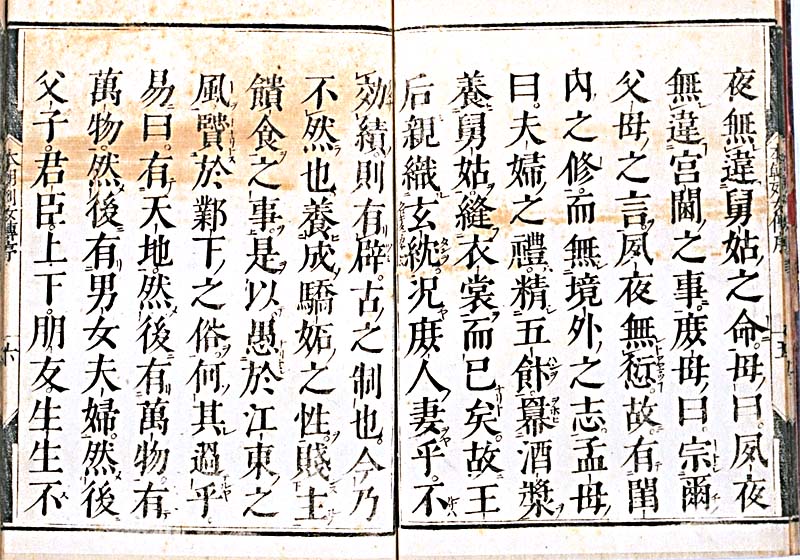 夜無違舅姑之命。母曰。夙夜
無違宮之事。庶母曰。宗爾
父母之言。夙夜無愆。故有閨
内之修。而無境外之志。孟母
曰。夫婦之禮。精五飰。冪酒漿。
養舅姑。縫衣裳而已矣。故王
后親織玄紞。况庶人妻乎。不
効績。則有辟。古之制也。今乃
不然也。養成驕妬之性。賤主
饋食之事。是以愚於江東之
風。贒於鄴下之俗。何其過乎。
易曰。有天地。然後有萬物。有
萬物。然後有男女夫婦。然後
父子。君臣。上下。朋友。生生不
本朝列女傳序 六